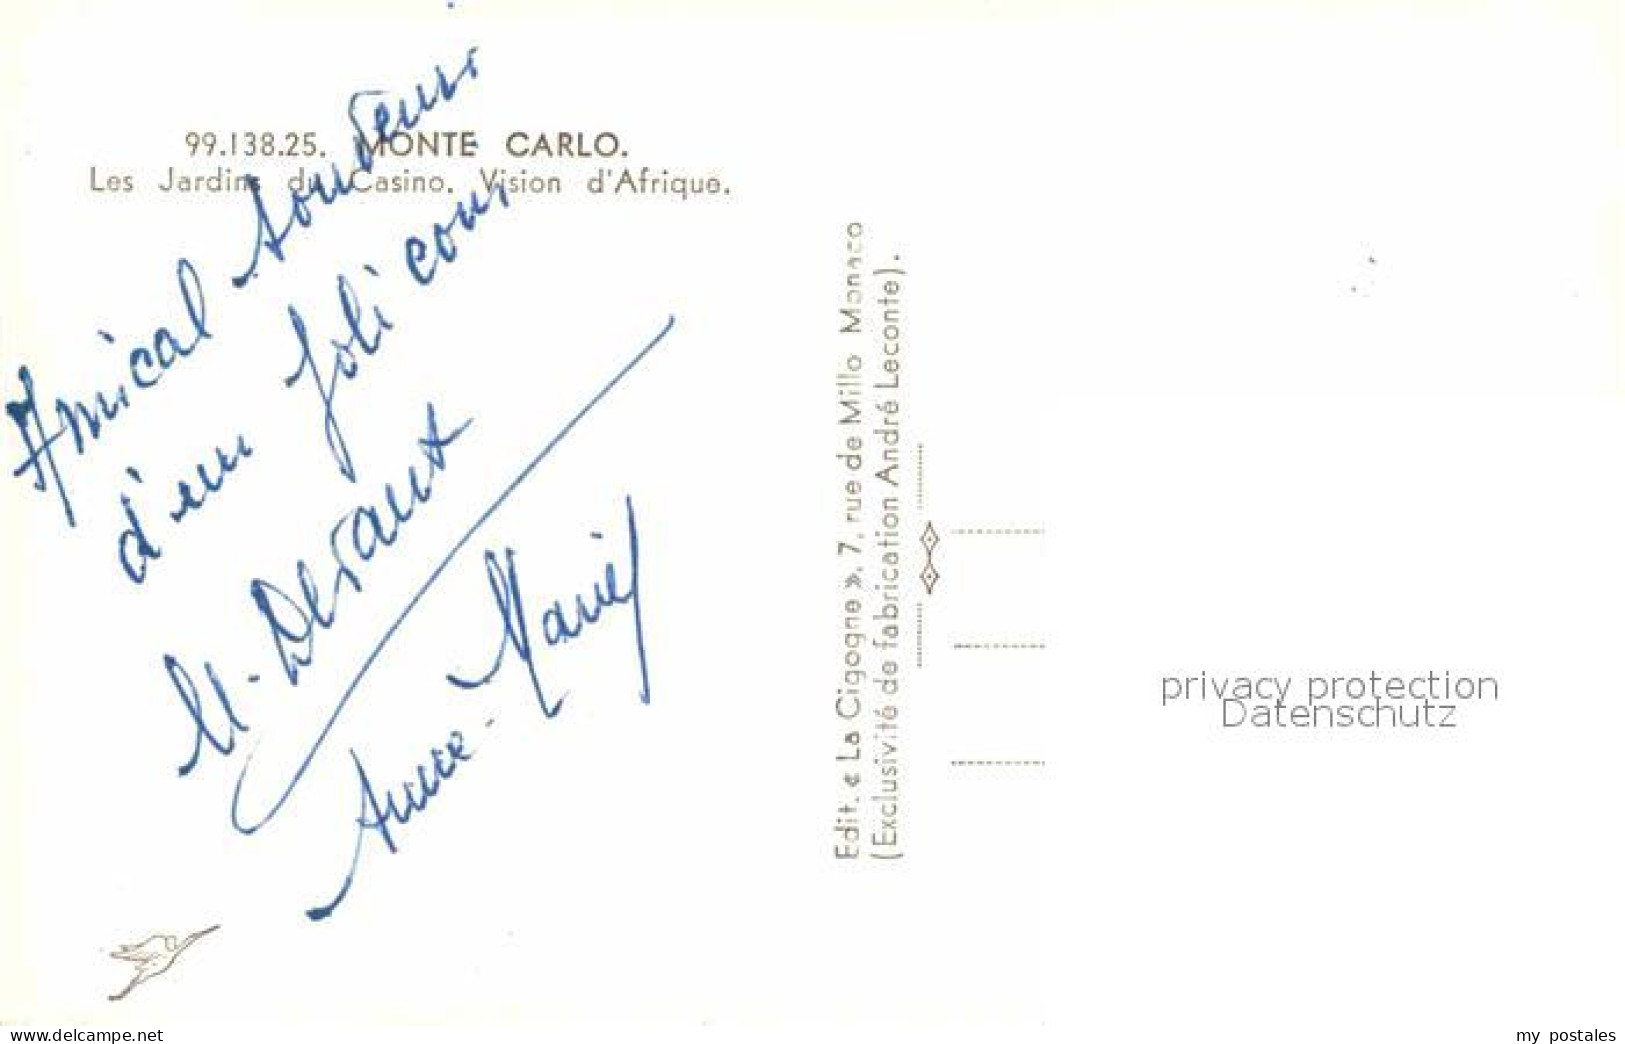 99.138.25. MONTE CARLO.
Les Jardins du Casino. Vision d'Afrique.
Amical souvenir
d'un joli coin
M. Desaux
Anne-Marie
Edit. « La Cigogne », 7, rue de Millo Monaco
(Exclusivité de fabrication André Leconte).
privacy protection
Datenschutz
www.delcampe.net
my_postales